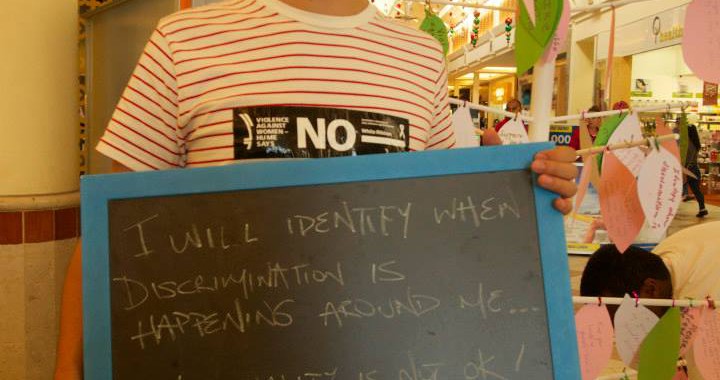 VIOLENCE
AGAINST
WOMEN –
HUME
SAYS
NO
White Ribbon
I WILL IDENTIFY WHEN
DISCRIMINATION IS
HAPPENING AROUND ME...
IS NOT OK!
000